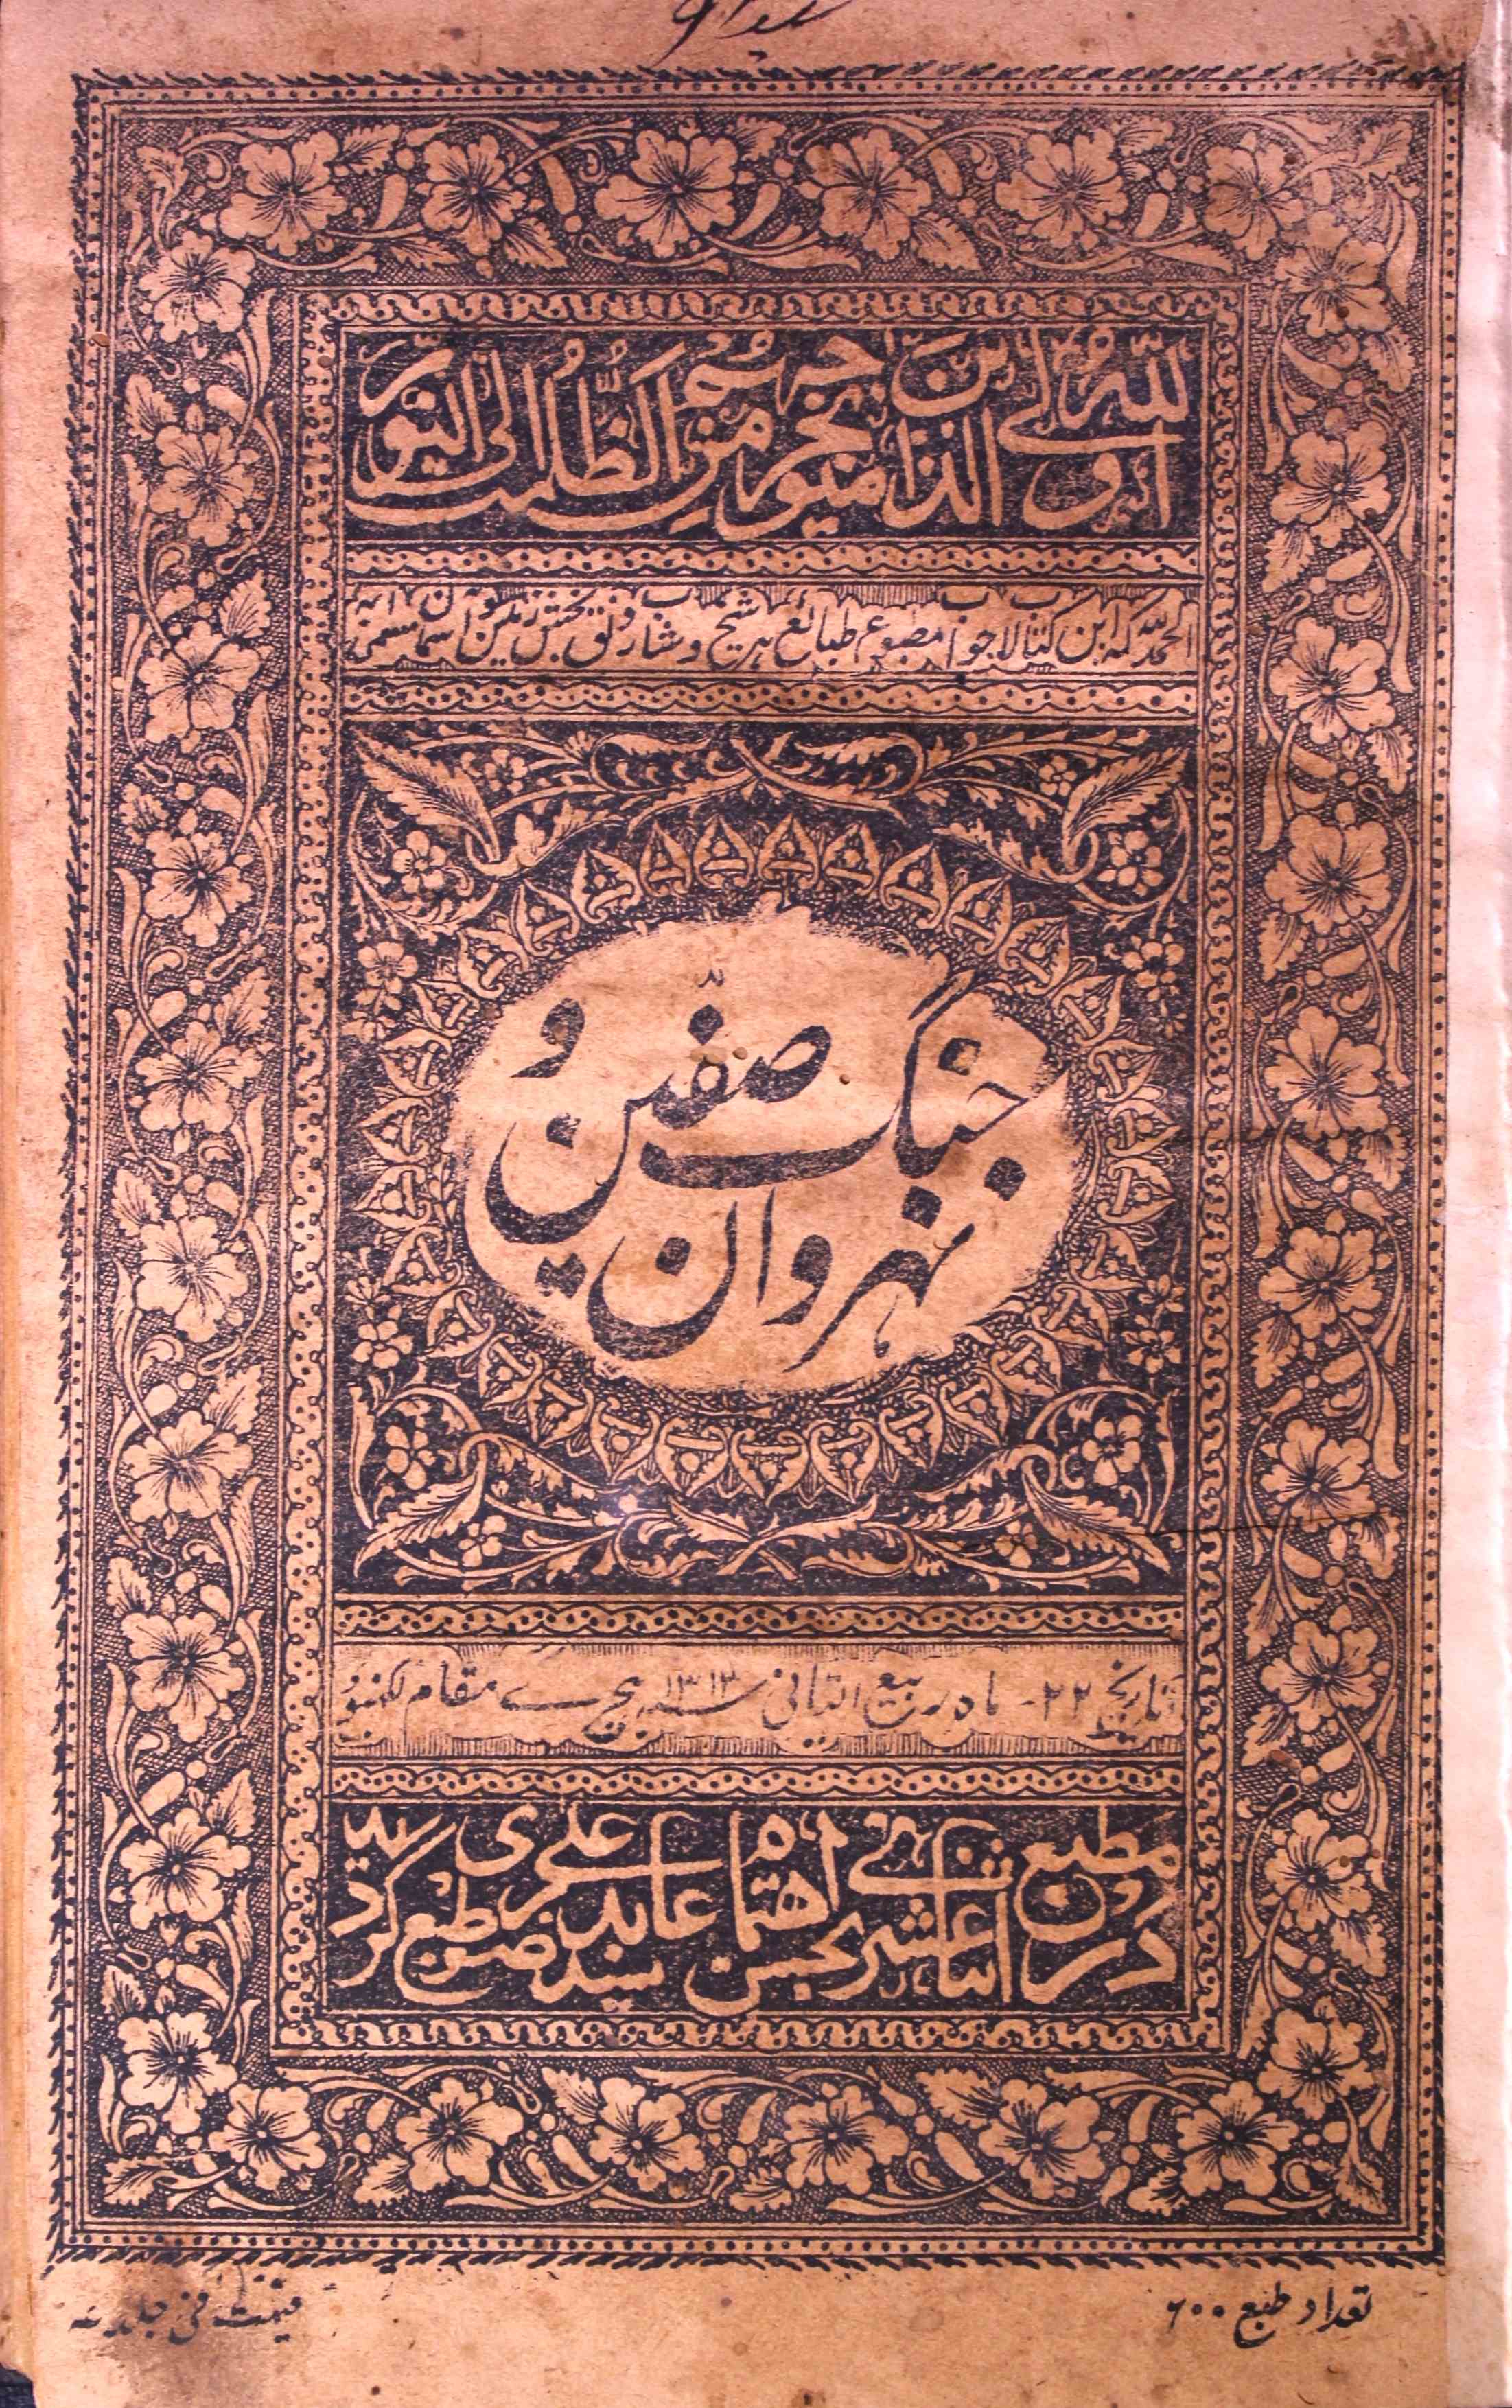 اللّٰه ولی الذین اٰمنوا یخرجهم من الظلمٰت الی النور
الحمد للّٰه که این کتاب لاجواب مطبوع طبائع هر شیخ و شاب رونق بخش زمین و آسمان مسمی به
جنگ صفّین و
نهروان
بتاریخ ۲۲- ماه ربیع الثانی سنه ۱۳۱۳ هجری بمقام لکهنؤ
در مطبع اثنا عشری باهتمام سید عابد علی رضوی طبع گردید
تعداد طبع ۶۰۰
قیمت فی جلد